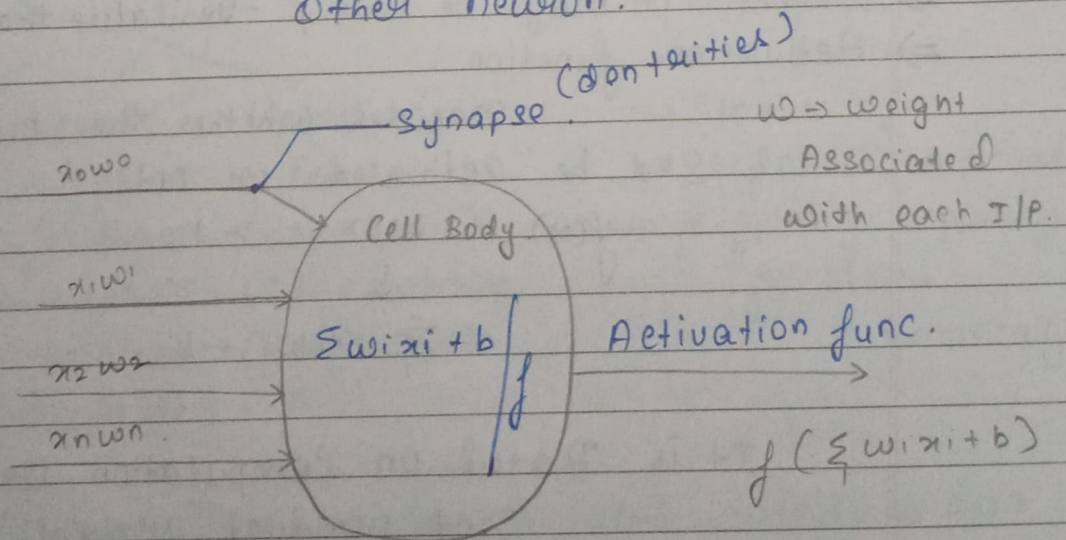 Other neuron.
(dentrities)
Synapse.
w → weight
Associated
with each I/P.
x0w0
Cell Body
x1w1
Σwixi + b
f
Activation func.
x2w2
xnwn
f (Σ wixi + b)